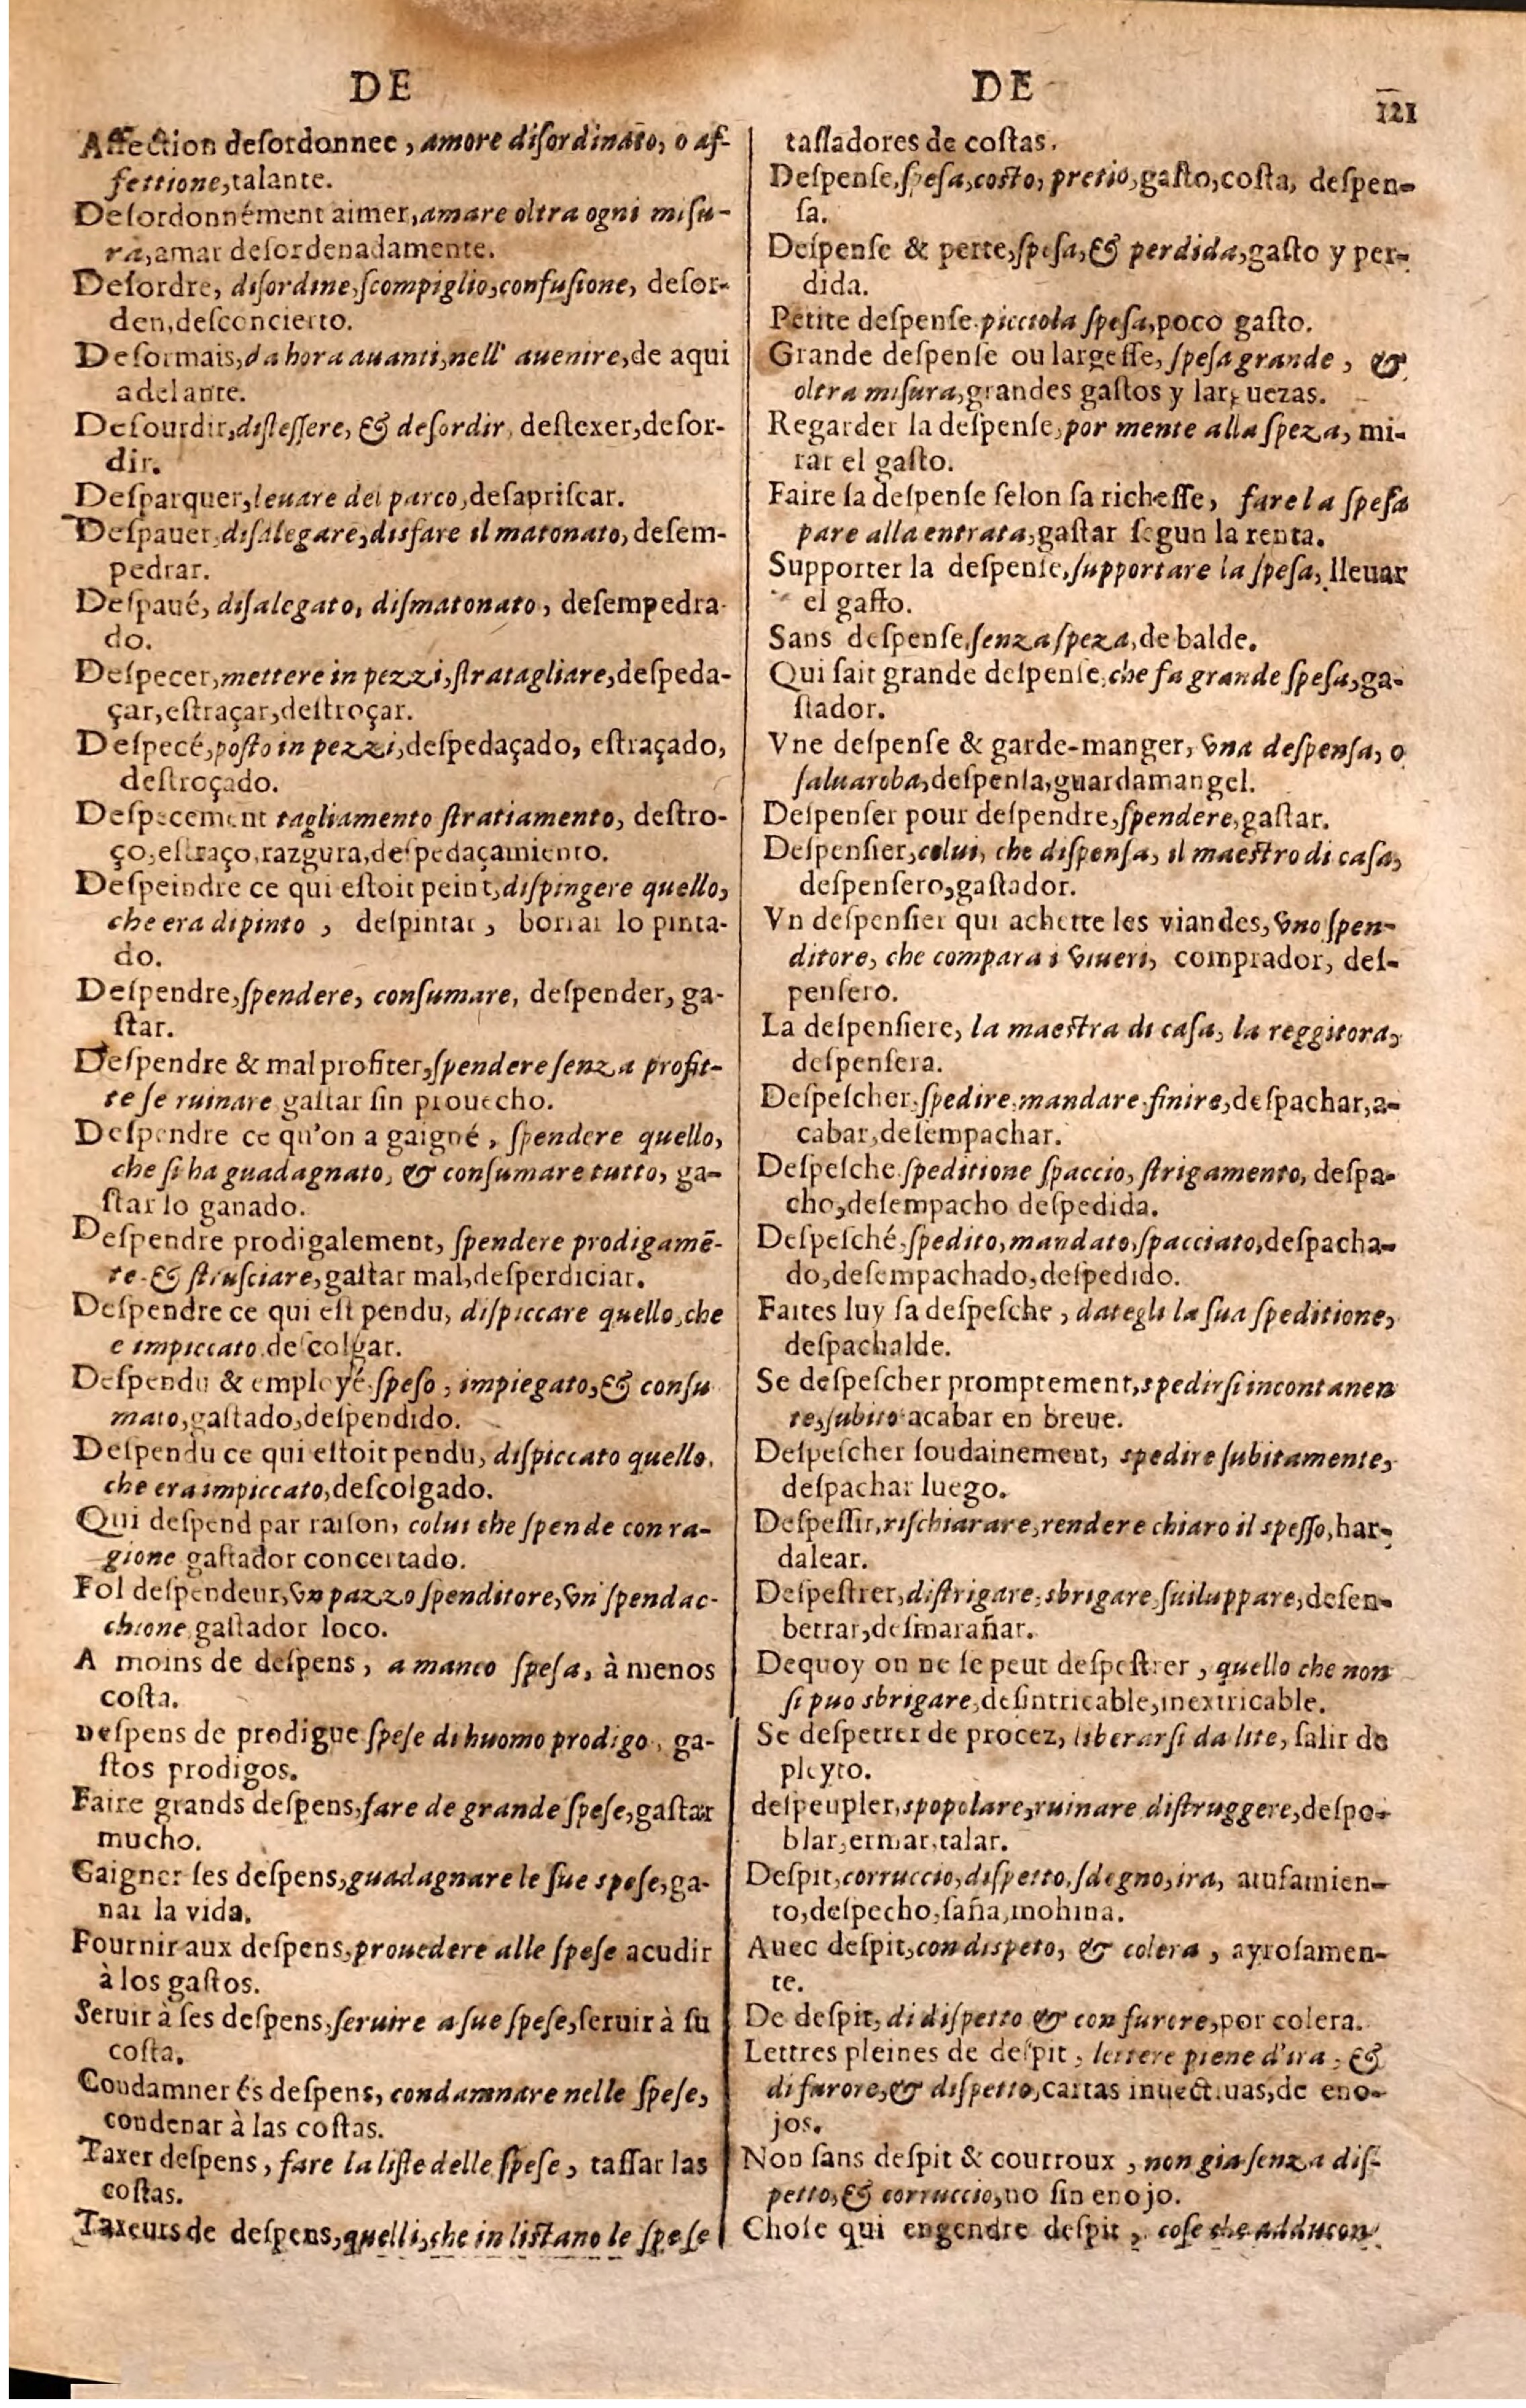 DE
Affection desordonnee, amore disordinato, o af-
fettione, talante.
Desordonnément aimer, amare oltra ogni misu-
ra, amar desordenadamente.
Desordre, disordine, scompiglio, confusione, desor-
den, desconcierto.
Desormais, da hora auanti, nell' auenire, de aqui
adelante.
Desourdir, distessere, & desordir, destexer, desor-
dir.
Desparquer, leuare del parco, desapriscar.
Despauer, disalegare, disfare il matonato, desem-
pedrar.
Despaué, disalegato, dismatonato, desempedra-
do.
Despecer, mettere in pezzi, stratagliare, despeda-
çar, estraçar, destroçar.
Despecé, posto in pezzi, despedaçado, estraçado,
destroçado.
Despecement tagliamento stratiamento, destro-
ço, estraço, razgura, despedaçamiento.
Despeindre ce qui estoit peint, dispingere quello,
che era dipinto, despintar, borrar lo pinta-
do.
Despendre, spendere, consumare, despender, ga-
star.
Despendre & mal profiter, spendere senza profit-
te se ruinare gastar sin prouecho.
Despendre ce qu'on a gaigné, spendere quello,
che si ha guadagnato, & consumare tutto, ga-
star lo ganado.
Despendre prodigalement, spendere prodigamē-
te & strusciare, gastar mal, desperdiciar.
Despendre ce qui est pendu, dispiccare quello, che
e impiccato descolgar.
Despendu & employé speso, impiegato, & consu
mato, gastado, despendido.
Despendu ce qui estoit pendu, dispiccato quello,
che era impiccato, descolgado.
Qui despend par raison, colui che spende con ra-
gione gastador concertado.
Fol despendeur, vn pazzo spenditore, vn spendac-
chione gastador loco.
A moins de despens, a manco spesa, à menos
costa.
Despens de prodigue spese di huomo prodigo, ga-
stos prodigos.
Faire grands despens, fare de grande spese, gastar
mucho.
Gaigner ses despens, guadagnare le sue spese, ga-
nar la vida.
Fournir aux despens, prouedere alle spese acudir
à los gastos.
Seruir à ses despens, seruire a sue spese, seruir à su
costa.
Condamner és despens, condamnare nelle spese,
condenar à las costas.
Taxer despens, fare la liste delle spese, tassar las
costas.
Taxeurs de despens, quelli, che in listano le spese
DE
121
tassadores de costas.
Despense, spesa, costo, pretio, gasto, costa, despen-
sa.
Despense & perte, spesa, & perdida, gasto y per-
dida.
Petite despense picciola spesa, poco gasto.
Grande despense ou largesse, spesa grande, &
oltra misura, grandes gastos y larguezas.
Regarder la despense, por mente alla speza, mi-
rar el gasto.
Faire sa despense selon sa richesse, fare la spesa
pare alla entrata, gastar segun la renta.
Supporter la despense, supportare la spesa, lleuar
el gasto.
Sans despense, senza speza, de balde.
Qui fait grande despense, che fa grande spesa, ga-
stador.
Vne despense & garde-manger, vna despensa, o
saluaroba, despensa, guardamangel.
Despenser pour despendre, spendere, gastar.
Despensier, celui, che dispensa, il maestro di casa,
despensero, gastador.
Vn despensier qui achette les viandes, vno spen-
ditore, che compara i viueri, comprador, des-
pensero.
La despensiere, la maestra di casa, la reggitora,
despensera.
Despescher, spedire, mandare, finire, despachar, a-
cabar, desempachar.
Despesche speditione spaccio, strigamento, despa-
cho, desempacho despedida.
Despesché, spedito, mandato, spacciato, despacha-
do, desempachado, despedido.
Faites luy sa despesche, dategli la sua speditione,
despachalde.
Se despescher promptement, spedirsi incontanen
te, subito acabar en breue.
Despescher soudainement, spedire subitamente,
despachar luego.
Despessir, rischiarare, rendere chiaro il spesso, har-
dalear.
Despestrer, distrigare, sbrigare, suiluppare, desen-
berrar, desmarañar.
Dequoy on ne se peut despestrer, quello che non
si puo sbrigare, desintricable, inextricable.
Se despetrer de procez, liberarsi da lite, salir de
pleyto.
despeupler, spopolare, ruinare distruggere, despo-
blar, ermar, talar.
Despit, corruccio, dispetto, sdegno, ira, atufamien-
to, despecho, saña, mohina.
Auec despit, con dispeto, & colera, ayrosamen-
te.
De despit, di dispetto & con furore, por colera.
Lettres pleines de despit, lettere piene d'ira, &
di furore, & dispetto, cartas inuectiuas, de eno-
jos.
Non sans despit & courroux, non gia senza dis-
petto, & corruccio, no sin enojo.
Chose qui engendre despit, cose che adducon